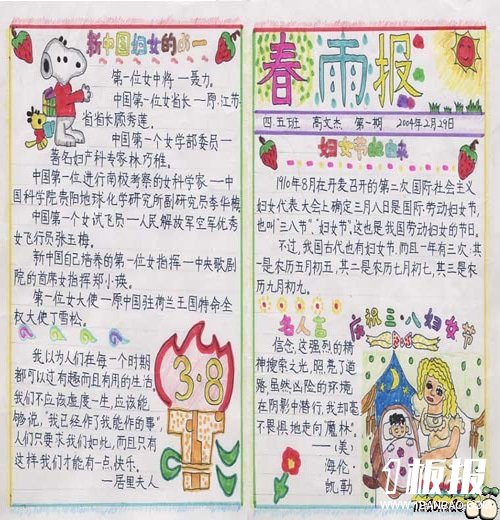 新中国妇女的第一
第一位女中将一聂力。
中国第一位女省长一原江苏
省省长顾秀莲。
中国第一个女学部委员一
著名妇产科专家林巧稚。
中国第一位进行南极考察的女科学家一中
国科学院贵阳地球化学研究所副研究员李华梅
中国第一个女试飞员一人民解放军空军优秀
女飞行员张玉梅。
新中国自己培养的第一位女指挥一中央歌剧
院的首席女指挥郑小瑛。
第一位女大使一原中国驻荷兰王国特命全
权大使丁雪松。
我以为人们在每一个时期
都可以过有趣而且有用的生活
我们不应该虚度一生,应该能
够说,"我已经作了我能作的事"
人们只要求我们如此,而且只有
这样我们才能有一点快乐。
一居里夫人
3·8
春雨报
四五班 高文杰 第一期 2004年2月29日
妇女节的由来
1910年8月在丹麦召开的第二次国际社会主义
妇女代表大会上确定三月八日是国际劳动妇女节,
也叫"三八节"。"妇女节",这也是我国劳动妇女的节日。
不过,我国古代也有妇女节,而且一年有三次,其
一是农历五月初五,其二是农历七月初七,其三是农
历九月初九。
名人言
庆祝三·八妇女节
信念,这强烈的精
神搜索之光,照亮了道
路,虽然凶险的环境
在阴影中潜行,我却毫
不畏惧地走向"魔林"
一(美)
海伦·
凯勒
板报